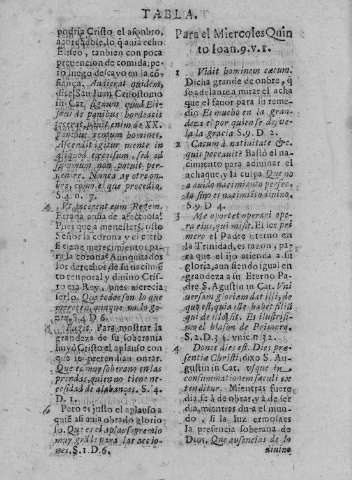 TABLA.
podria Cristo el asonbro,
acordable, lo q̃ avia echo
Eliseo, tanbien con poca
prevencion de comida, pe-
ro luego descayo en la cõ-
fiança. Audierat quidem,
dice San Iuan Crisostomo
in Cat. signum quod Eli-
seus de panibus hordeaceis
fecerat,
Ascendit igitur mente in
aliquod excelsum, sed ad
summum non potuit per-
venire. Nunca ay otro on-
bre, como el que procedia.
S. 4. n. 7.
Vt faciant eum Regem.
Estraña ansia de afectuosa!
Pues que a menester su
Señor la corona? y si otro
si tiene merecimiento, pa-
ra la corona? Aun quitados
los derechos de su nacimiẽ
to tenporal, y divino Cristo
era Rey, pues merecia
serlo. Que todos son lo que
merecen, aunque no lo go-
cen. S. 4. D. 6.
Fugit. Para mostrar la
grandeza de su soberania
huyò Cristo el aplauso con
que le pretendian onrar.
Que es muy soberano en las
prendas, quien no tiene ne-
cesidad de alabanças. S. 4.
D. 1.
6 Pero es justo el aplauso a
quiẽ asi avia obrado glorio
so. Que es el aplauso premio
muy grãde para las accio-
nes. S. 1. D. 6.
Para el Miercoles Quin
to Ioan. 9. v. 1.
1 Vidit hominem cæcum.
Dicha grande de onbre, q̃
se adelante a mirar el acha
que el favor para su reme-
dio. Es mucho en la gran-
deza el por quien se desve-
la la gracia S. 9. D. 2.
2 Cæcum à nativitate &c.
quis peccavit? Bastò el na-
cimiento para adivinar el
achaque, y la culpa Que no
a avido nacimiento perfec-
to sino es el nacimiento divino.
S. 9. D. 4.
3 Me oportet operari ope-
ra eius, qui misit. El ser pri
mero el Padre eterno en
la Trinidad, es razon, pa-
ra que el ijo atienda a su
gloria, aun siendo igual en
grandeza a su Eterno Pa-
dre S. Agustin in Cat. Vni
versam gloriam dat illi, de
quo est, quia ille habet filiũ
qui de illo sit. Es ilustrisi-
mo el blason de Primero.
S. 1. D. 3. §. vnic. n. 32.
4 Donec dies est. Dies præ-
sentia Christi, dixo S. Au-
gustin in Cat. vsque in
consummationem sæculi ex
tenditur. Mientras fuere
dia se à de obrar, y à de ser
dia, mientras dura el mun-
do, si la luz ermosa es
la presencia soberana de
Dios. Que ausencias de lo
divino